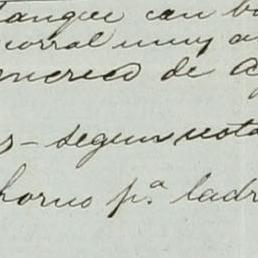 tanque con b
corral muy a
merced de a
s - segun nota
horno p.ª ladr